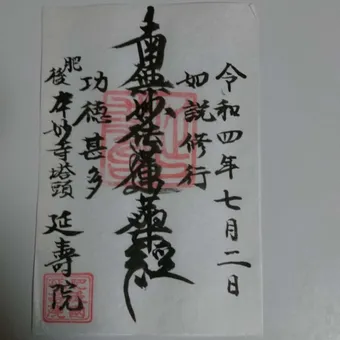 令和四年七月二日
如説修行
南無妙法蓮華経
功徳甚多
肥後 本妙寺塔頭 延壽院